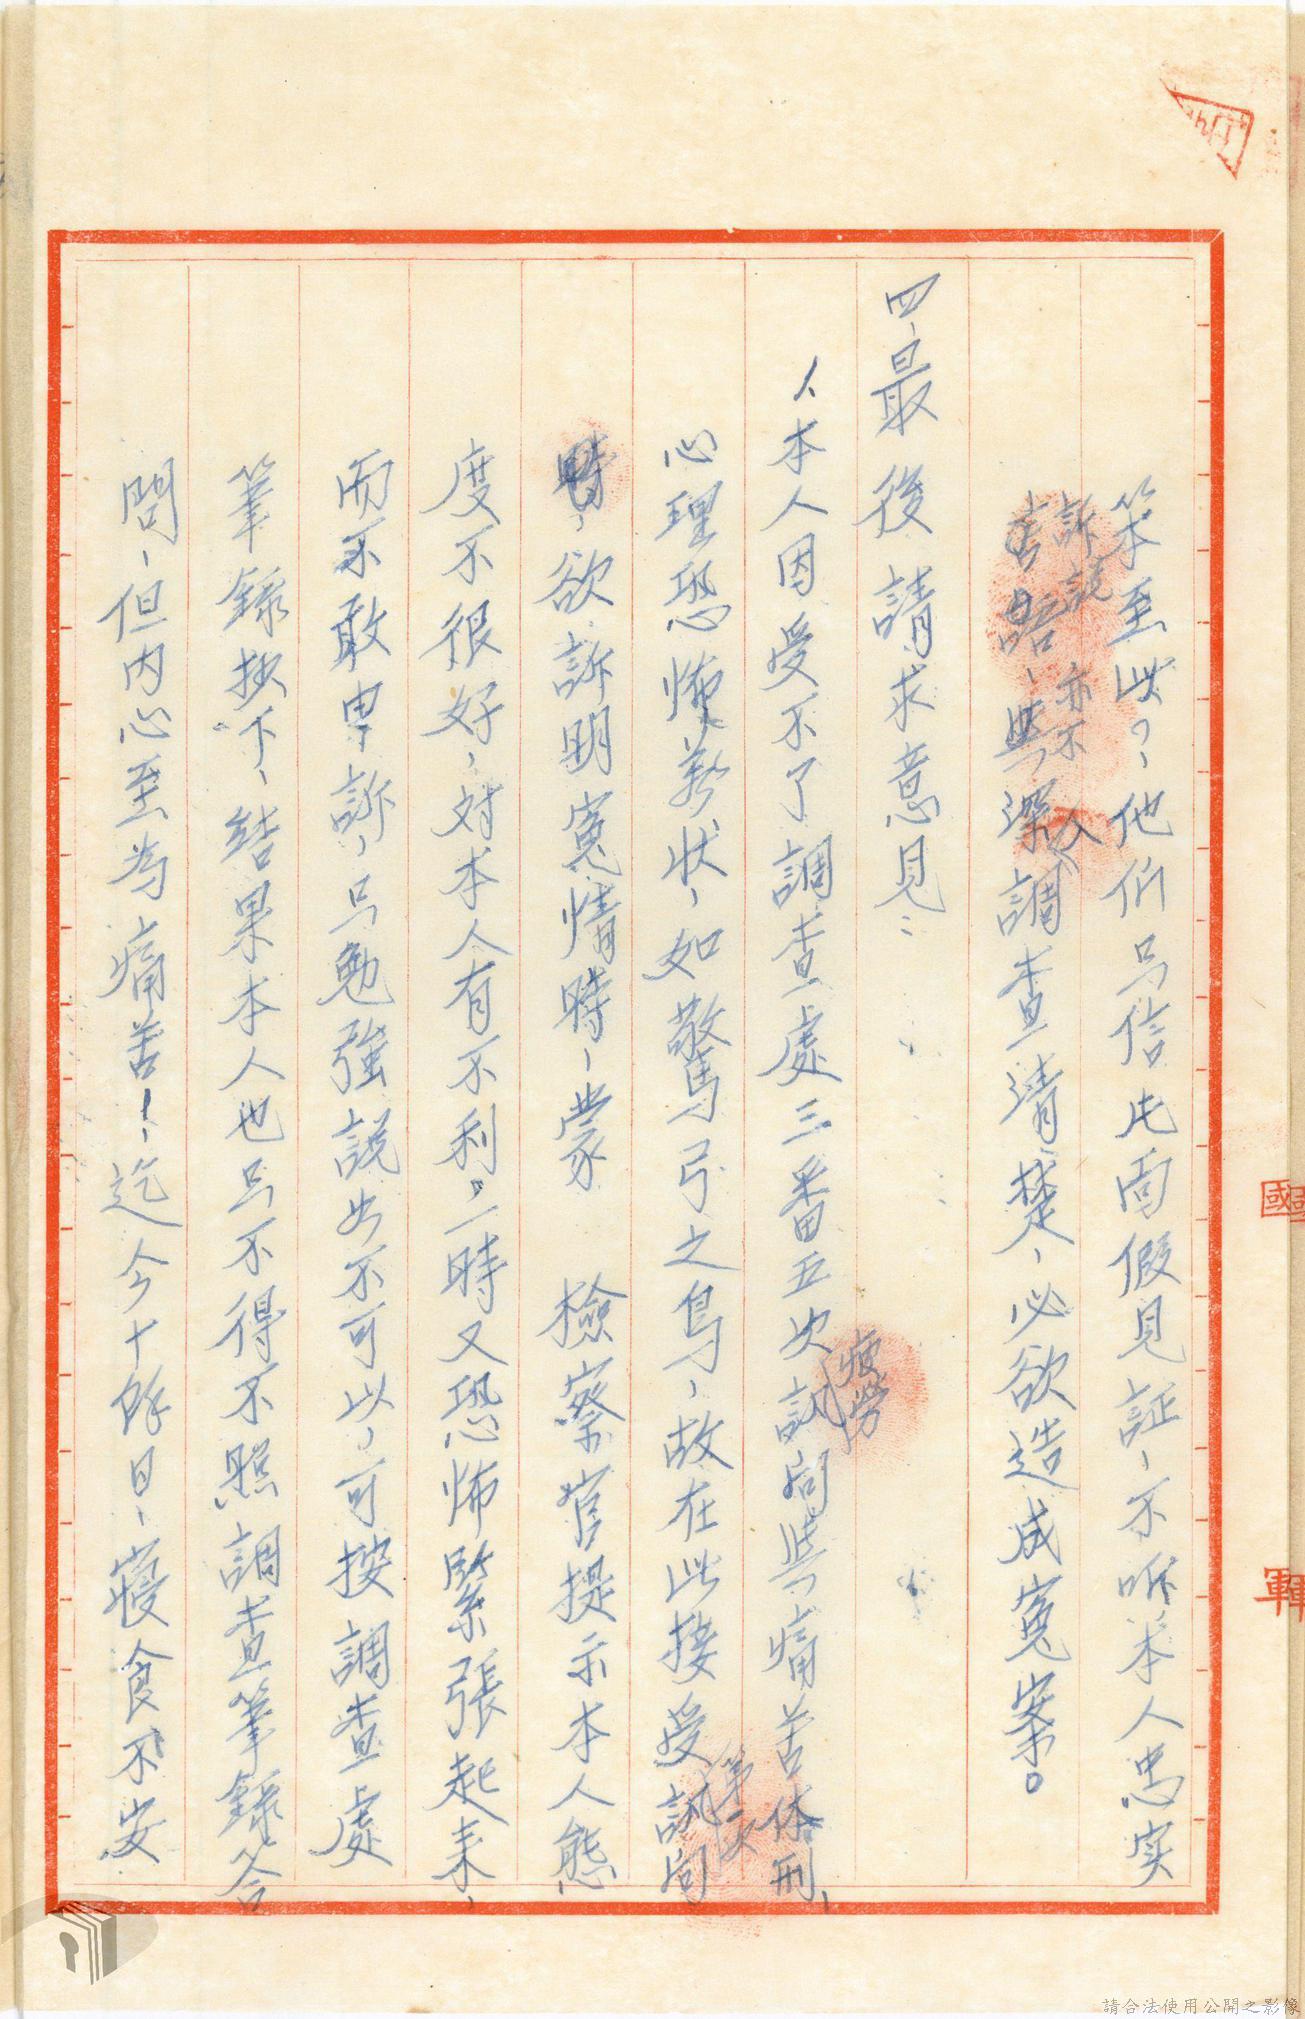 笨至此？，他们只信片面假見証，不听本人忠实
訴説亦不入
害語，與深調查清楚，必欲造成寃案。
四、最後請求意見：
1、本人因受不了調查處三番五次疲勞訊问與痛苦体刑，
心理恐怖萎状，如驚弓之鳥，故在此接受第一次訊问
時，欲訴明寃情時，蒙　檢察官提示本人態
度不很好，对本人有不利，一時又恐怖緊張起来，
而不敢申訴，只勉強説出不可以，可按調查處
筆錄按下，結果本人也只不得不照調查筆錄答
問，但内心至為痛苦！，迄今十餘日，寢食不安
國
軍
請合法使用公開之影像